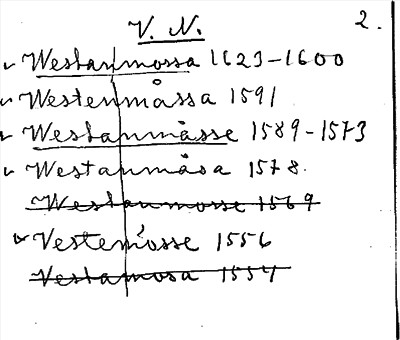 V. N. 2.
Westanmossa 1623-1600
Westenmåssa 1591
Westanmåsse 1589-1573
Westanmåsa 1578.
Westanmosse 1569
Vestemosse 1556
Vestamosa 1554